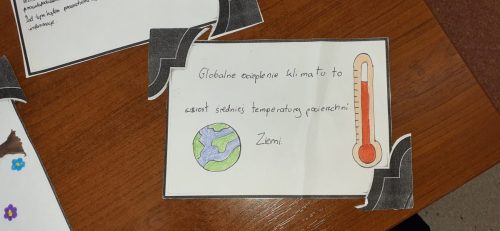 Jest
informacje.
Globalne ocieplenie klimatu to
wzrost średniej temperatury powierzchni
Ziemi